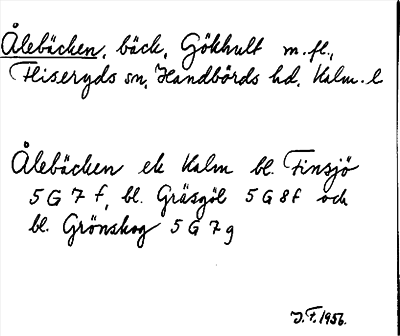 Ålebäcken, bäck, Gökhult m.fl.,
Fliseryds sn, Handbörds hd, Kalm. l
Ålebäcken ek Kalm bl. Finsjö
5 G 7 f, bl. Gräsgöl 5 G 8 f och
bl. Grönskog 5 G 7 g
J. F. 1956.